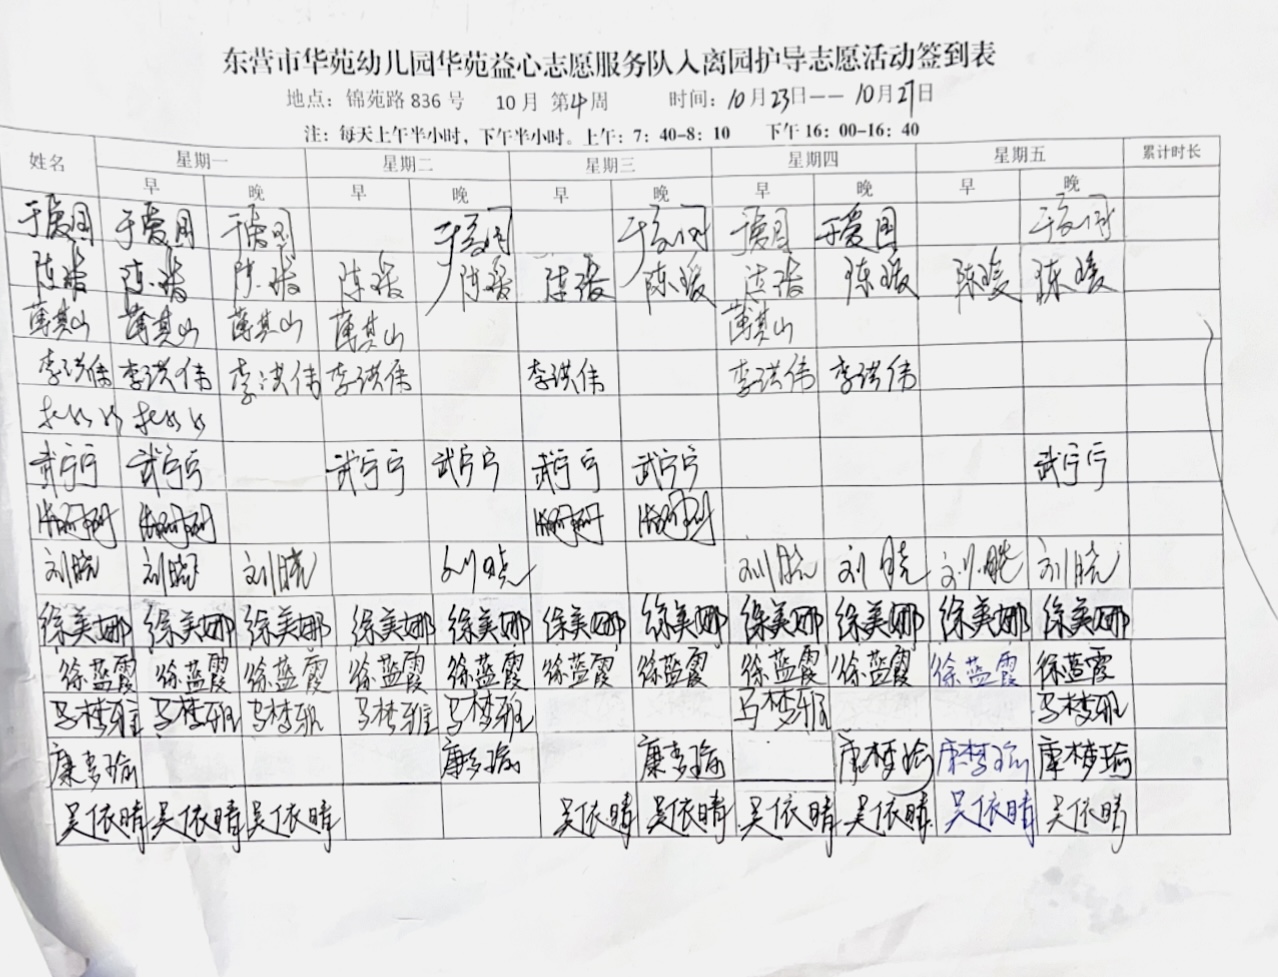 东营市华苑幼儿园华苑益心志愿服务队入离园护导志愿活动签到表
地点：锦苑路 836 号 10 月 第4周 时间：10月23日—— 10月27日
注：每天上午半小时，下午半小时。上午：7：40-8：10 下午 16：00-16：40
姓名 星期一 星期二 星期三 星期四 星期五 累计时长
早 晚 早 晚 早 晚 早 晚 早 晚
于爱国 于爱国 于爱国 于爱国 于爱国 于爱国 于爱国 于爱国
陈瑗 陈瑗 陈瑗 陈瑗 陈瑗 陈瑗 陈瑗 陈瑗 陈瑗 陈瑗 陈瑗
薄其山 薄其山 薄其山 薄其山 薄其山
李洪伟 李洪伟 李洪伟 李洪伟 李洪伟 李洪伟 李洪伟
武宁宁 武宁宁 武宁宁 武宁宁 武宁宁 武宁宁 武宁宁
刘晓 刘晓 刘晓 刘晓 刘晓 刘晓 刘晓 刘晓
徐美娜 徐美娜 徐美娜 徐美娜 徐美娜 徐美娜 徐美娜 徐美娜 徐美娜 徐美娜 徐美娜
徐蓝霞 徐蓝霞 徐蓝霞 徐蓝霞 徐蓝霞 徐蓝霞 徐蓝霞 徐蓝霞 徐蓝霞 徐蓝霞 徐蓝霞
马梦雅 马梦雅 马梦雅 马梦雅 马梦雅 马梦雅 马梦雅
康梦瑜 康梦瑜 康梦瑜 康梦瑜 康梦瑜 康梦瑜
吴依晴 吴依晴 吴依晴 吴依晴 吴依晴 吴依晴 吴依晴 吴依晴 吴依晴